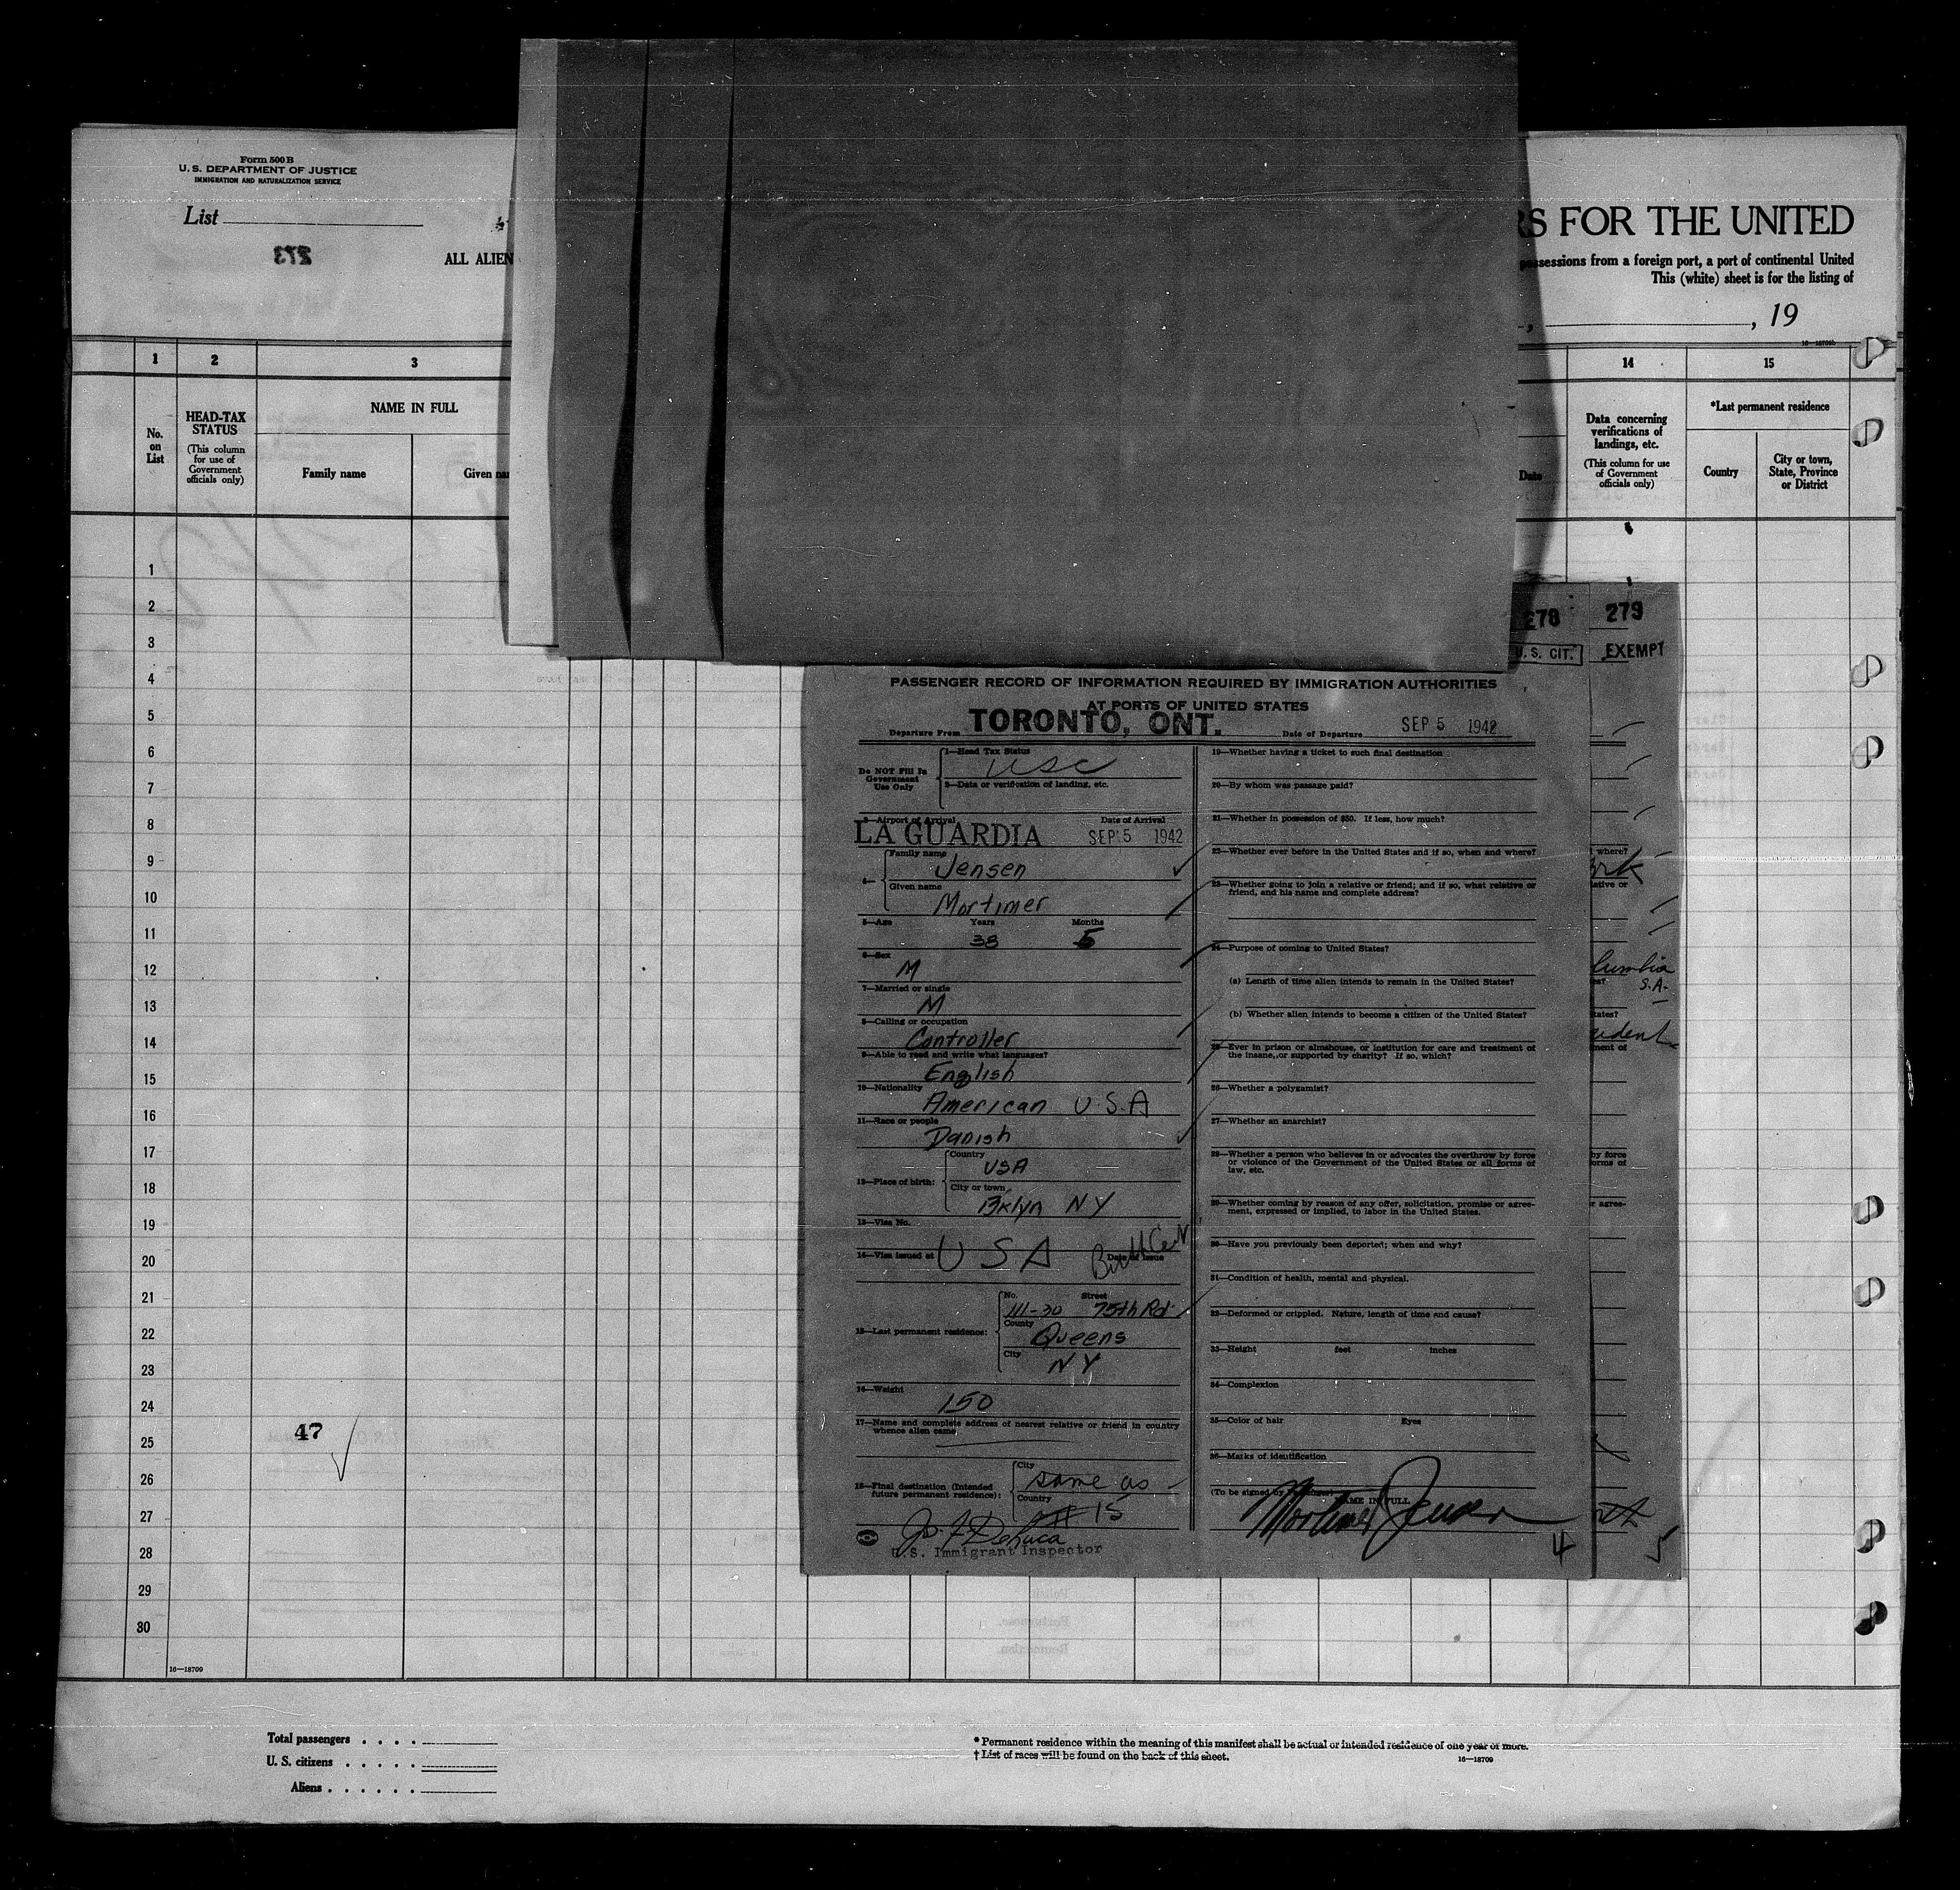 Form 500 B
U. S. DEPARTMENT OF JUSTICE
IMMIGRATION AND NATURALIZATION SERVICE
List
273
ALL ALIEN
RS FOR THE UNITED
possessions from a foreign port, a port of continental United
This (white) sheet is for the listing of
, 19
1 2 3 14 15
No. on List
HEAD-TAX STATUS
(This column for use of Government officials only)
NAME IN FULL
Family name
Given
Date
Data concerning verifications of landings, etc.
(This column for use of Government officials only)
*Last permanent residence
Country
City or town, State, Province or District
1
2
3
4
5
6
7
8
9
10
11
12
13
14
15
16
17
18
19
20
21
22
23
24
25
26
27
28
29
30
47
16—18709
278
U. S. CIT.
279
EXEMPT
PASSENGER RECORD OF INFORMATION REQUIRED BY IMMIGRATION AUTHORITIES
AT PORTS OF UNITED STATES
Departure From TORONTO, ONT. Date of Departure SEP 5 1942
Do NOT Fill In Government Use Only
1—Head Tax Status
USC
2—Data or verification of landing, etc.
3—Airport of Arrival Date of Arrival
LA GUARDIA SEP 5 1942
4—
Family name
Jensen
Given name
Mortimer
5—Age Years Months
38 5
6—Sex
M
7—Married or single
M
8—Calling or occupation
Controller
9—Able to read and write what languages?
English
10—Nationality
American U.S.A
11—Race or people
Danish
12—Place of birth:
Country
USA
City or town
Bklyn NY
13—Visa No.
14—Visa issued at USA Date of Issue
15—Last permanent residence:
No. Street
111-30 75th Rd
County
Queens
City
NY
16—Weight
150
17—Name and complete address of nearest relative or friend in country
whence alien came
18—Final destination (Intended
future permanent residence):
City
same as
Country
# 15
U.S. Immigrant Inspector
19—Whether having a ticket to such final destination
20—By whom was passage paid?
21—Whether in possession of $50. If less, how much?
22—Whether ever before in the United States and if so, when and where?
23—Whether going to join a relative or friend; and if so, what relative or
friend, and his name and complete address?
24—Purpose of coming to United States?
(a) Length of time alien intends to remain in the United States?
(b) Whether alien intends to become a citizen of the United States?
25—Ever in prison or almshouse, or institution for care and treatment of
the insane, or supported by charity? If so, which?
26—Whether a polygamist?
27—Whether an anarchist?
28—Whether a person who believes in or advocates the overthrow by force
or violence of the Government of the United States or all forms of
law, etc.
29—Whether coming by reason of any offer, solicitation, promise or agree-
ment, expressed or implied, to labor in the United States.
30—Have you previously been deported; when and why?
31—Condition of health, mental and physical.
32—Deformed or crippled. Nature, length of time and cause?
33—Height feet inches
34—Complexion
35—Color of hair Eyes
36—Marks of identification
(To be signed by
NAME IN FULL
Mortimer Jensen
4
5
where?
ative or
lumbia
S.A.
tates?
ment of
by force
orms of
r agree-
Total passengers . . . .
U. S. citizens . . . . .
Aliens . . . . . .
* Permanent residence within the meaning of this manifest shall be actual or intended residence of one year or more.
† List of races will be found on the back of this sheet.
16—18709